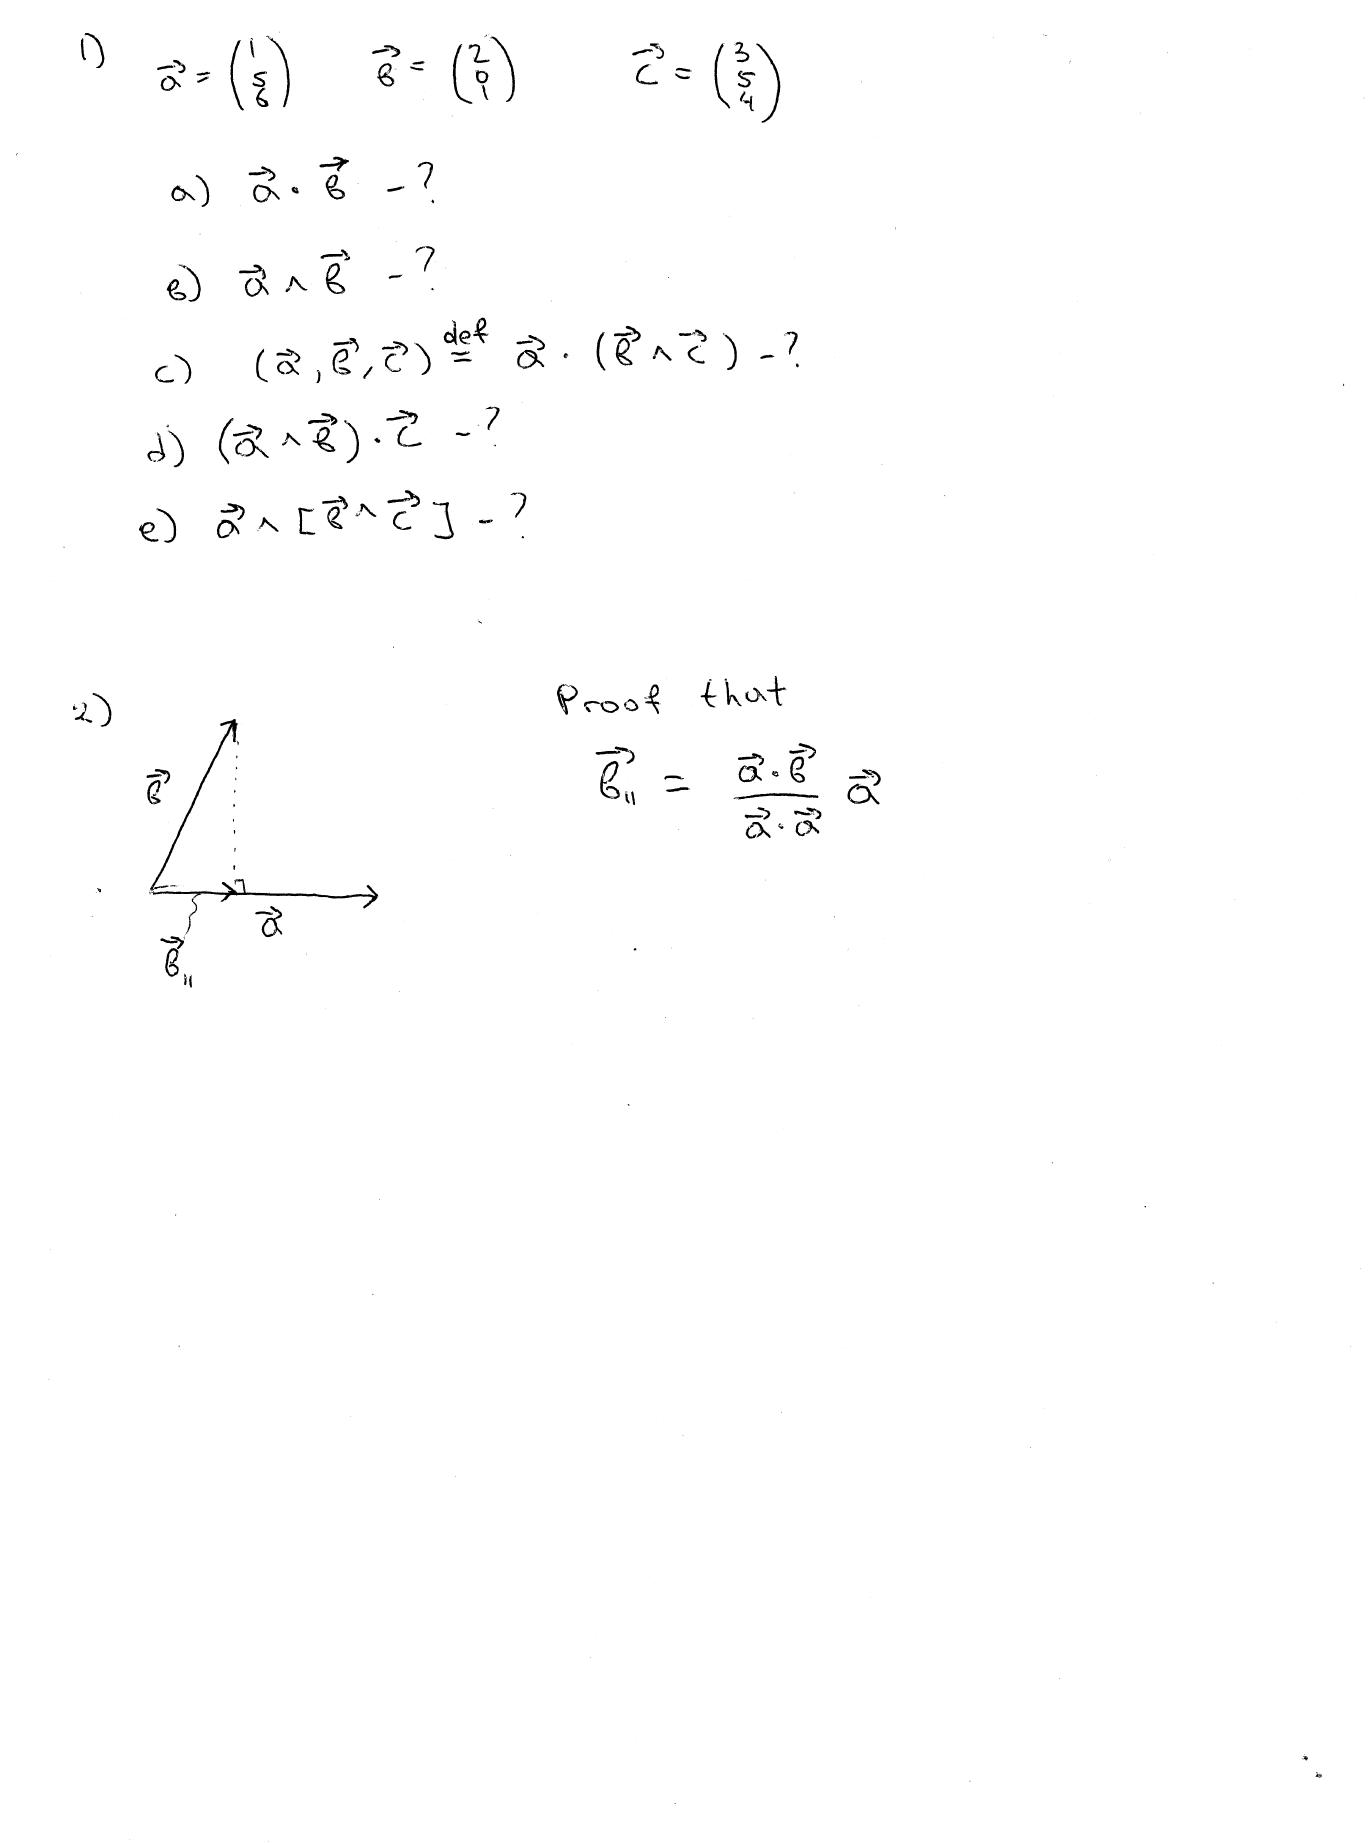 1) a⃗ = (1 5 6) b⃗ = (2 0 1) c⃗ = (3 5 4)
a) a⃗ · b⃗ - ?
b) a⃗ ∧ b⃗ - ?
c) (a⃗, b⃗, c⃗) def= a⃗ · (b⃗ ∧ c⃗) - ?
d) (a⃗ ∧ b⃗) · c⃗ - ?
e) a⃗ ∧ [b⃗ ∧ c⃗] - ?
2) Proof that
b⃗
b⃗_∥ = (a⃗ · b⃗)/(a⃗ · a⃗) a⃗
a⃗
b⃗_∥